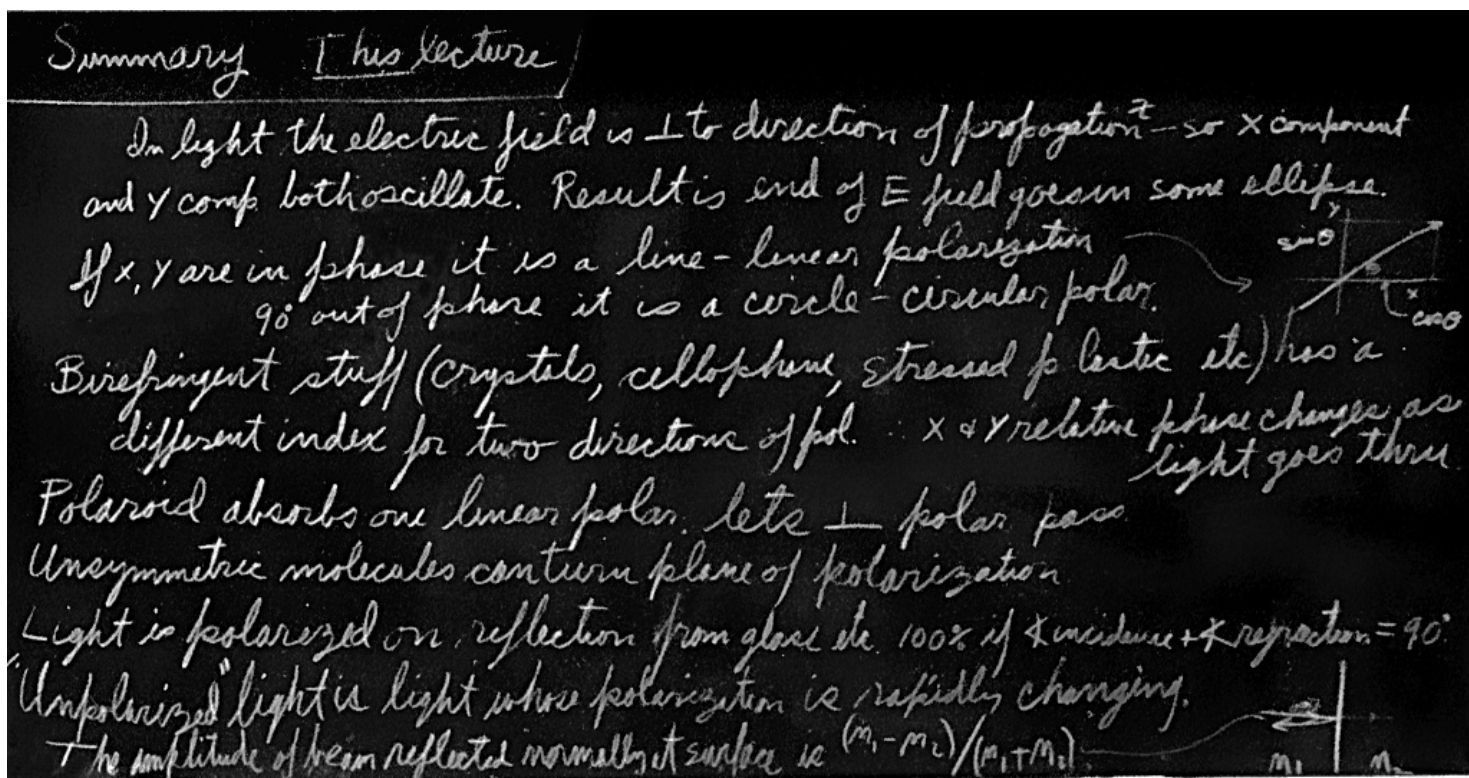 Summary This lecture
In light the electric field is ⊥ to direction of propagation z – so X component
and Y comp. both oscillate. Result is end of E field goes in some ellipse.
If X, Y are in phase it is a line – linear polarization
90° out of phase it is a circle – circular polar.
y
sin θ
θ
x
cos θ
Birefringent stuff (crystals, cellophane, stressed plastic etc) has a
different index for two directions of pol. ∴ X & Y relative phase changes as
light goes thru
Polaroid absorbs one linear polar. lets ⊥ polar pass
Unsymmetric molecules can turn plane of polarization
Light is polarized on reflection from glass etc 100% if ∢ incidence + ∢ refraction = 90°
"Unpolarized" light is light whose polarization is rapidly changing.
The amplitude of beam reflected normally at surface is (n₁ – n₂)/(n₁ + n₂)
n₁ n₂